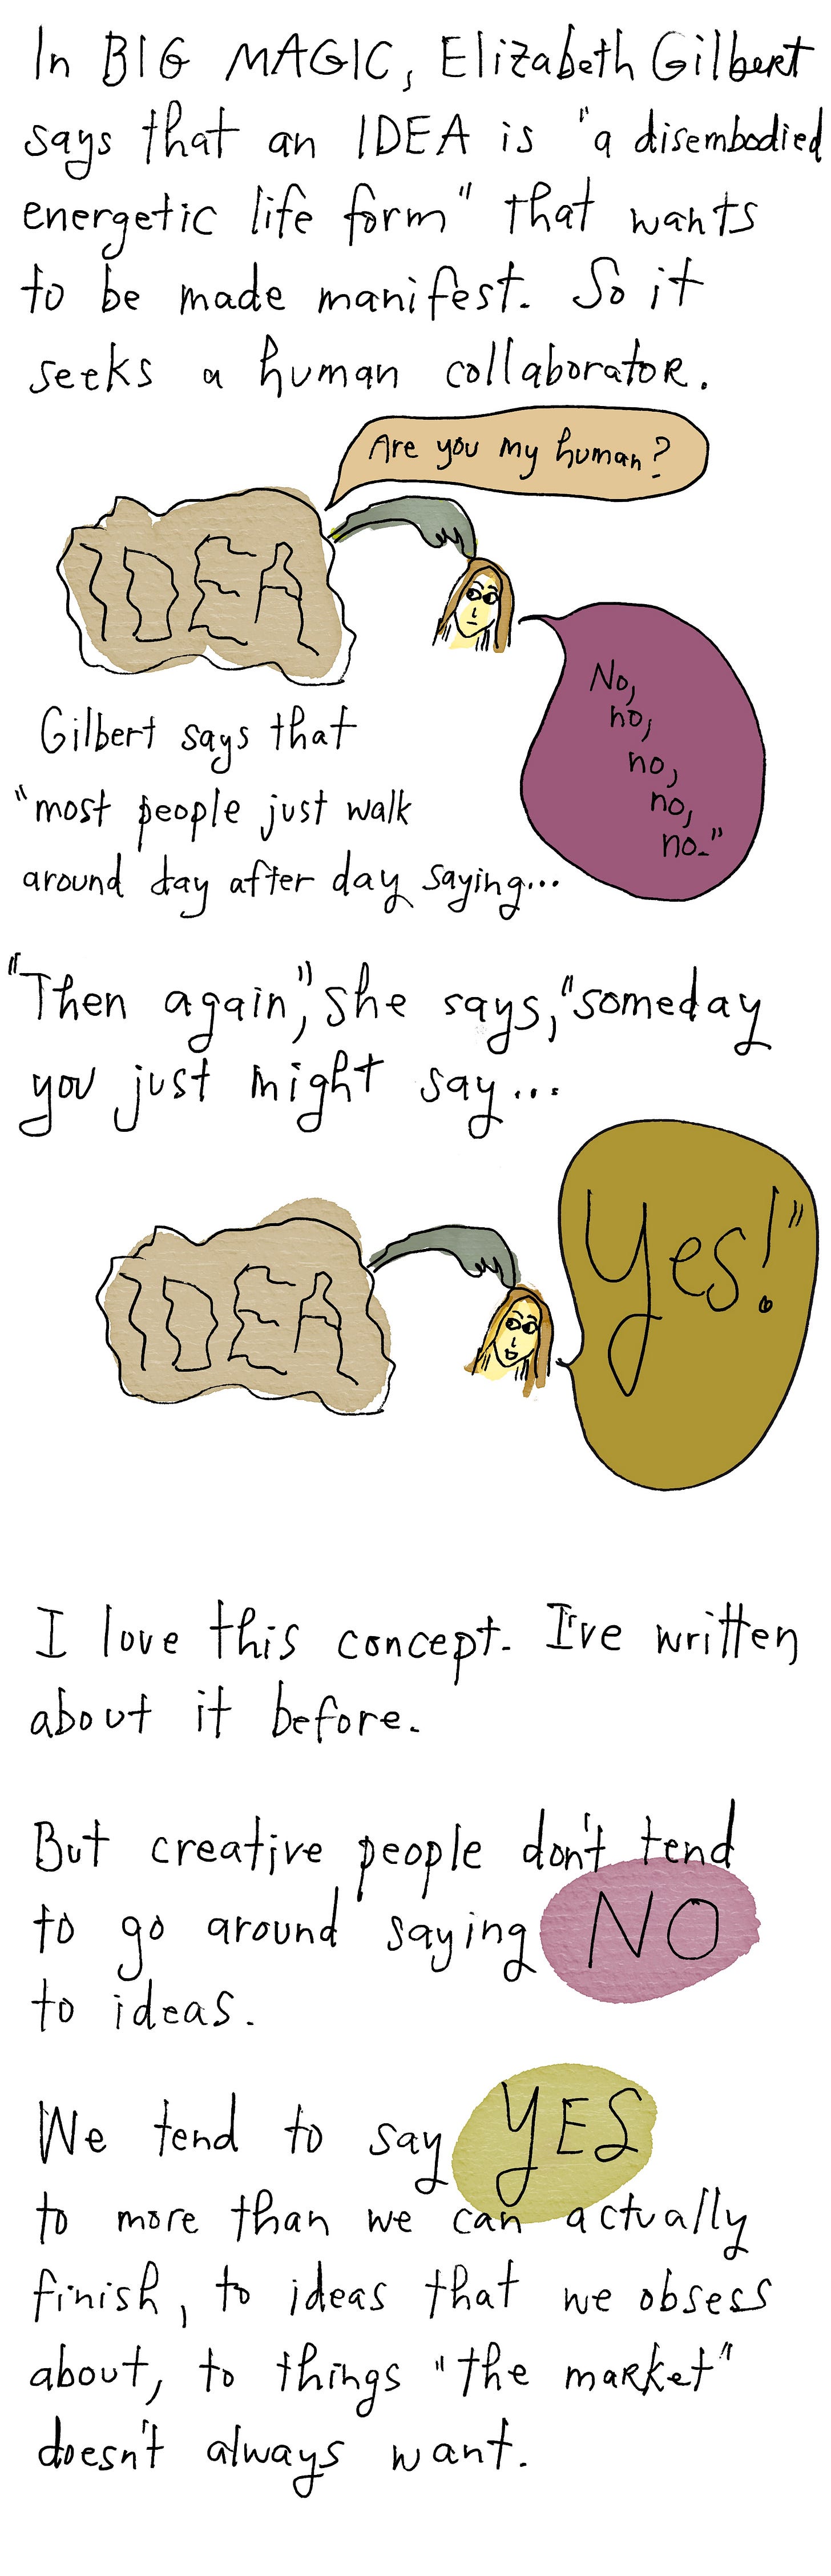 In BIG MAGIC, Elizabeth Gilbert
says that an IDEA is "a disembodied
energetic life form" that wants
to be made manifest. So it
seeks a human collaborator.
Are you my human?
IDEA
No,
no,
no,
no,
no."
Gilbert says that
"most people just walk
around day after day saying...
"Then again," she says, "someday
you just might say...
Yes!"
IDEA
I love this concept. I've written
about it before.
But creative people don't tend
to go around saying NO
to ideas.
We tend to say YES
to more than we can actually
finish, to ideas that we obsess
about, to things "the market"
doesn't always want.